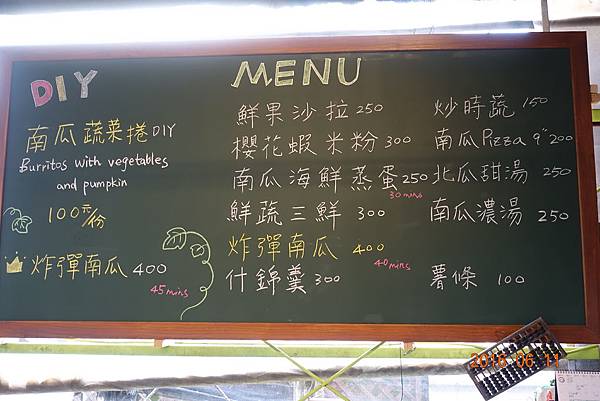 DIY
南瓜蔬菜捲DIY
Burritos with vegetables
and pumpkin
100元/份
炸彈南瓜 400
45mins
MENU
鮮果沙拉 250
櫻花蝦米粉 300
南瓜海鮮蒸蛋 250
30mins
鮮蔬三鮮 300
炸彈南瓜 400
40mins
什錦羹 300
炒時蔬 150
南瓜Pizza 9" 200
北瓜甜湯 250
南瓜濃湯 250
薯條 100
2016.06.11